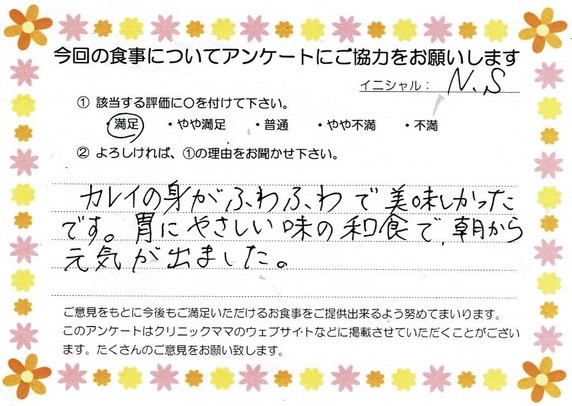 今回の食事についてアンケートにご協力をお願いします
イニシャル： N.S
① 該当する評価に○を付けて下さい。
・満足 ・やや満足 ・普通 ・やや不満 ・不満
② よろしければ、①の理由をお聞かせ下さい。
カレイの身がふわふわで美味しかった
です。胃にやさしい味の和食で、朝から
元気が出ました。
ご意見をもとに今後もご満足いただけるお食事をご提供出来るよう努めてまいります。
このアンケートはクリニックママのウェブサイトなどに掲載させていただくことがござい
ます。たくさんのご意見をお願い致します。